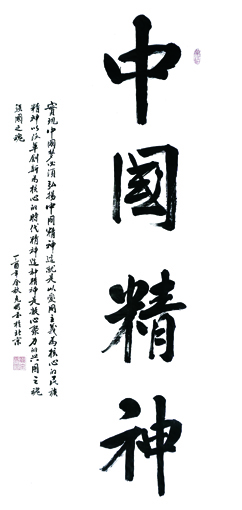 中國精神
實現中國夢必須弘揚中國精神這就是以愛國主義為核心的民族
精神以改革創新為核心的時代精神這種精神是凝心聚力的興國之魂
強國之魂
丁酉年 書於北京